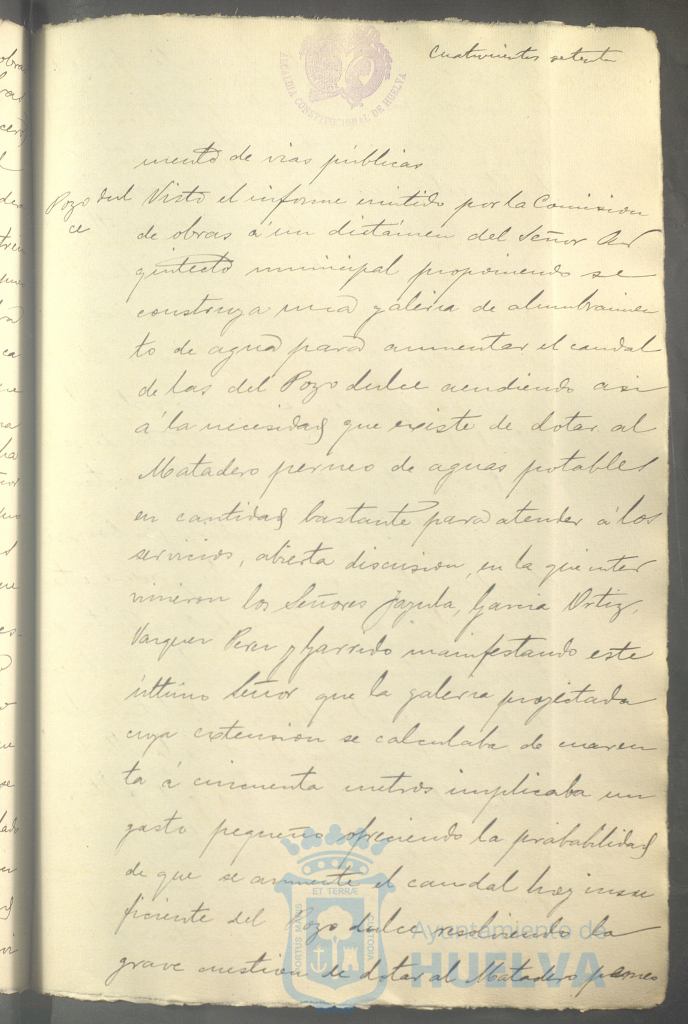 Cuatrocientos setenta
ALCALDIA CONSTITUCIONAL DE HUELVA
mento de vias públicas
Pozo dul
ce
Visto el informe emitido por la Comision
de obras á un dictámen del Señor Ar
quitecto municipal proponiendo se
construya una galeria de alumbramien
to de agua para aumentar el caudal
de las del Pozo dulce acudiendo asi
á la necesidad que existe de dotar al
Matadero perneo de aguas potables
en cantidad bastante para atender á los
servicios, abierta discusion, en la que inter
vinieron los Señores Japula, Garcia Ortiz,
Vazquez Perez y Garrido manifestando este
último Señor que la galeria projectada
cuya extension se calculaba de cuaren
ta á cincuenta metros implicaba un
gasto pequeño ofreciendo la probabilidad
de que se aumente el caudal hoy insu
ficiente del Pozo dulce resolviendo la
grave cuestion de dotar al Matadero perneo
ET TERRÆ
PORTUS MARIS
CUSTODIA
Ayuntamiento de
HUELVA